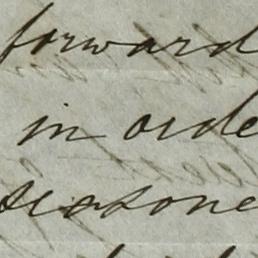 forward
in orde
seasone